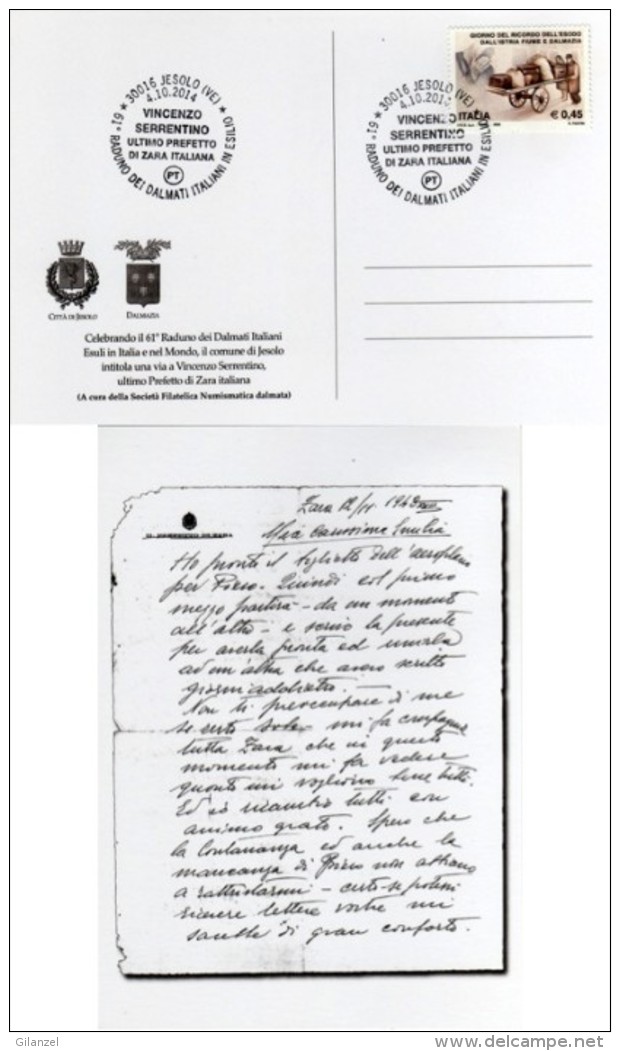 GIORNO DEL RICORDO DELL'ESODO
DALL'ISTRIA FIUME E DALMAZIA
ITALIA € 0,45
30016 JESOLO (VE) ★ 61° RADUNO DEI DALMATI ITALIANI IN ESILIO ★
4.10.2014
VINCENZO
SERRENTINO
ULTIMO PREFETTO
DI ZARA ITALIANA
PT
30016 JESOLO (VE) ★ 61° RADUNO DEI DALMATI ITALIANI IN ESILIO
4.10.2014
VINCENZO
SERRENTINO
ULTIMO PREFETTO
DI ZARA ITALIANA
PT
CITTÀ DI JESOLO
DALMAZIA
Celebrando il 61° Raduno dei Dalmati Italiani
Esuli in Italia e nel Mondo, il comune di Jesolo
intitola una via a Vincenzo Serrentino,
ultimo Prefetto di Zara italiana
(A cura della Società Filatelica Numismatica dalmata)
Zara
Mia carissima
Ho pronto il biglietto dell'aeroplano
per Piero. Quindi col primo
mezzo partirà - da un momento
all'altro - e scrivo la presente
per averla pronta ed unirla
ad un'altra che avevo scritto
giorni addietro.
Non ti preoccupare di me
se resto solo mi fa
tutta Zara che in questo
momento mi fa vedere
quanto mi vogliono bene tutti.
Ed io ricambio tutti con
animo grato. Spero che
la lontananza ed anche la
mancanza di Piero non
a rattristarmi - certo se potessi
ricevere lettere vostre mi
sarebbe di gran conforto.
Gilanzel
delcampe.net